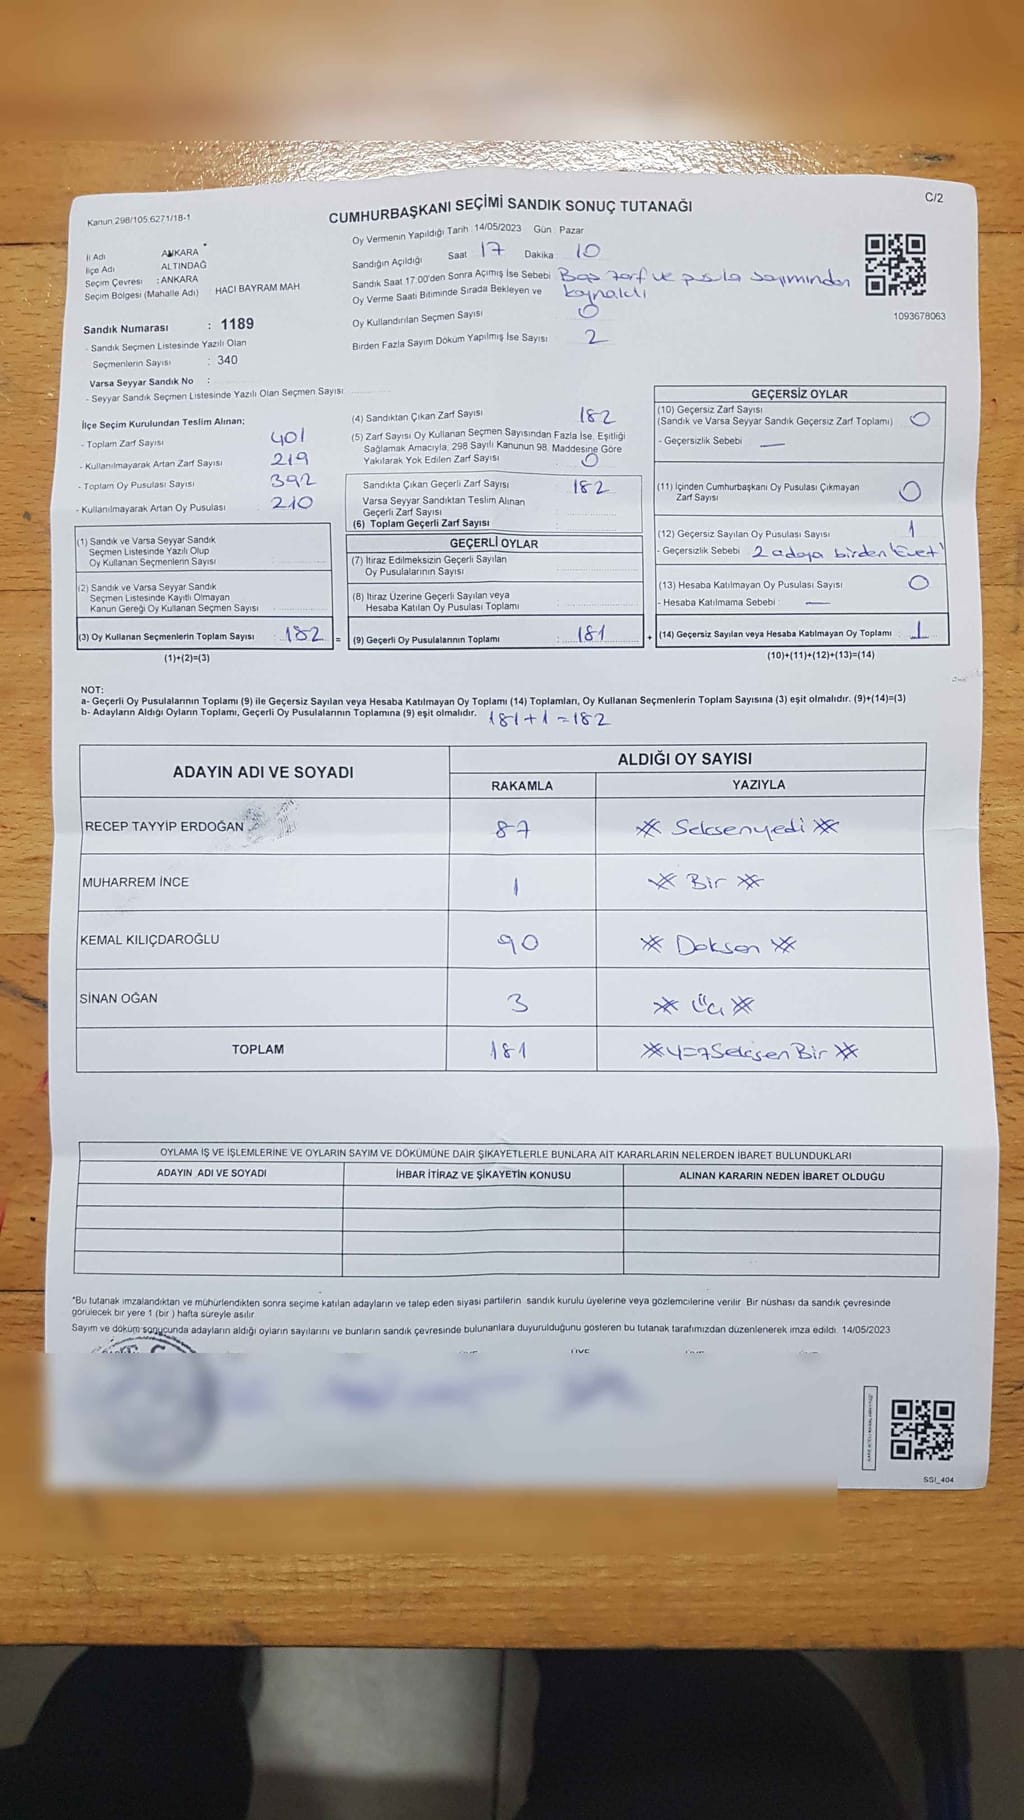 C/2
Kanun 298/105,6271/18-1
CUMHURBAŞKANI SEÇİMİ SANDIK SONUÇ TUTANAĞI
İl Adı ANKARA
İlçe Adı ALTINDAĞ
Seçim Çevresi : ANKARA
Seçim Bölgesi (Mahalle Adı) HACI BAYRAM MAH
Sandık Numarası : 1189
- Sandık Seçmen Listesinde Yazılı Olan
Seçmenlerin Sayısı : 340
Varsa Seyyar Sandık No :
- Seyyar Sandık Seçmen Listesinde Yazılı Olan Seçmen Sayısı
Oy Vermenin Yapıldığı Tarih : 14/05/2023 Gün : Pazar
Sandığın Açıldığı Saat 17 Dakika 10
Sandık Saat 17:00'den Sonra Açımış İse Sebebi Boş zarf ve pusula sayımından
kaynaklı
Oy Verme Saati Bitiminde Sırada Bekleyen ve
Oy Kullandırılan Seçmen Sayısı 0
Birden Fazla Sayım Döküm Yapılmış İse Sayısı 2
1093678063
İlçe Seçim Kurulundan Teslim Alınan;
- Toplam Zarf Sayısı 401
- Kullanılmayarak Artan Zarf Sayısı 219
- Toplam Oy Pusulası Sayısı 392
- Kullanılmayarak Artan Oy Pusulası 210
(1) Sandık ve Varsa Seyyar Sandık
Seçmen Listesinde Yazılı Olup
Oy Kullanan Seçmenlerin Sayısı
(2) Sandık ve Varsa Seyyar Sandık
Seçmen Listesinde Kayıtlı Olmayan
Kanun Gereği Oy Kullanan Seçmen Sayısı
(3) Oy Kullanan Seçmenlerin Toplam Sayısı : 182 =
(1)+(2)=(3)
(4) Sandıktan Çıkan Zarf Sayısı 182
(5) Zarf Sayısı Oy Kullanan Seçmen Sayısından Fazla İse, Eşitliği
Sağlamak Amacıyla, 298 Sayılı Kanunun 98. Maddesine Göre
Yakılarak Yok Edilen Zarf Sayısı 0
Sandıkta Çıkan Geçerli Zarf Sayısı 182
Varsa Seyyar Sandıktan Teslim Alınan
Geçerli Zarf Sayısı
(6) Toplam Geçerli Zarf Sayısı
GEÇERLİ OYLAR
(7) İtiraz Edilmeksizin Geçerli Sayılan
Oy Pusulalarının Sayısı
(8) İtiraz Üzerine Geçerli Sayılan veya
Hesaba Katılan Oy Pusulası Toplamı
(9) Geçerli Oy Pusulalarının Toplamı : 181 +
GEÇERSİZ OYLAR
(10) Geçersiz Zarf Sayısı
(Sandık ve Varsa Seyyar Sandık Geçersiz Zarf Toplamı) 0
- Geçersizlik Sebebi —
(11) İçinden Cumhurbaşkanı Oy Pusulası Çıkmayan
Zarf Sayısı 0
(12) Geçersiz Sayılan Oy Pusulası Sayısı 1
- Geçersizlik Sebebi 2 adaya birden 'Evet'
(13) Hesaba Katılmayan Oy Pusulası Sayısı 0
- Hesaba Katılmama Sebebi : —
(14) Geçersiz Sayılan veya Hesaba Katılmayan Oy Toplamı : 1
(10)+(11)+(12)+(13)=(14)
NOT:
a- Geçerli Oy Pusulalarının Toplamı (9) ile Geçersiz Sayılan veya Hesaba Katılmayan Oy Toplamı (14) Toplamları, Oy Kullanan Seçmenlerin Toplam Sayısına (3) eşit olmalıdır. (9)+(14)=(3)
b- Adayların Aldığı Oyların Toplamı, Geçerli Oy Pusulalarının Toplamına (9) eşit olmalıdır. 181+1=182
ADAYIN ADI VE SOYADI
ALDIĞI OY SAYISI
RAKAMLA YAZIYLA
RECEP TAYYIP ERDOĞAN 87 Seksenyedi
MUHARREM İNCE 1 Bir
KEMAL KILIÇDAROĞLU 90 Doksan
SİNAN OĞAN 3 Üç
TOPLAM 181 Yüz Seksen Bir
OYLAMA İŞ VE İŞLEMLERİNE VE OYLARIN SAYIM VE DÖKÜMÜNE DAİR ŞİKAYETLERLE BUNLARA AİT KARARLARIN NELERDEN İBARET BULUNDUKLARI
ADAYIN ADI VE SOYADI İHBAR İTİRAZ VE ŞİKAYETİN KONUSU ALINAN KARARIN NEDEN İBARET OLDUĞU
*Bu tutanak imzalandıktan ve mühürlendikten sonra seçime katılan adayların ve talep eden siyasi partilerin sandık kurulu üyelerine veya gözlemcilerine verilir. Bir nüshası da sandık çevresinde
görülecek bir yere 1 (bir ) hafta süreyle asılır
Sayım ve döküm sonucunda adayların aldığı oyların sayılarını ve bunların sandık çevresinde bulunanlara duyurulduğunu gösteren bu tutanak tarafımızdan düzenlenerek imza edildi. 14/05/2023
SSI_404